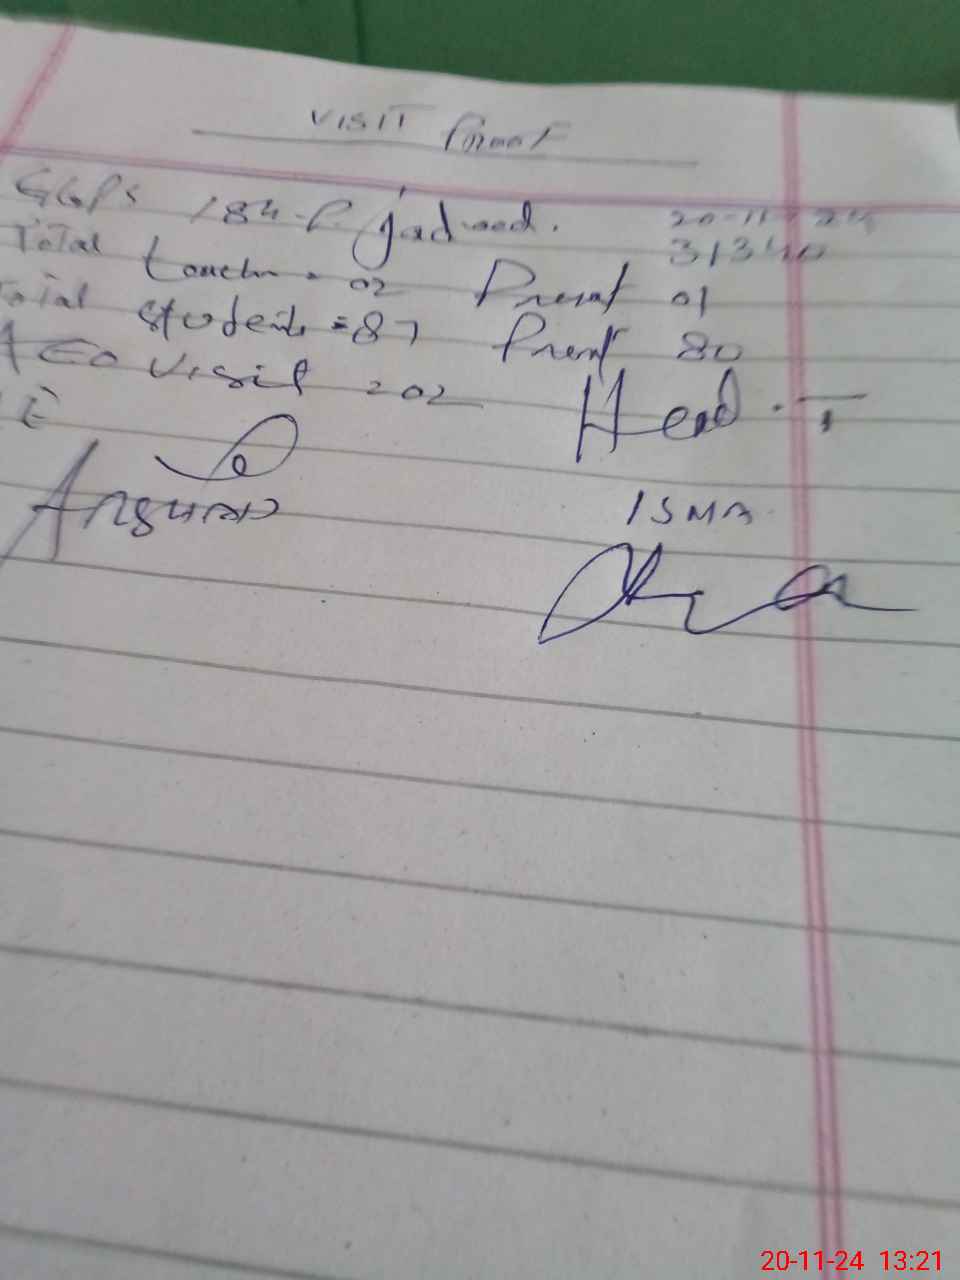 VISIT Proof
GGPS 184-P. Jadeed. 20-11-24
31340
Total teacher = 02 Present 01
Total students = 87 Present 80
AEO Visit = 02
Head. T
ISMA
20-11-24 13:21